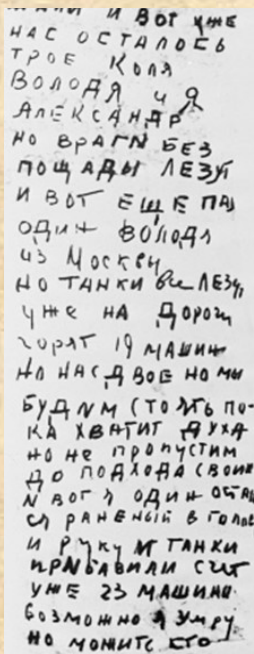 И ВОТ УЖЕ
НАС ОСТАЛОСЬ
ТРОЕ КОЛЯ
ВОЛОДЯ И Я
АЛЕКСАНДР
НО ВРАГИ БЕЗ
ПОЩАДЫ ЛЕЗУТ
И ВОТ ЕЩЕ ПАЛ
ОДИН ВОЛОДЯ
ИЗ МОСКВЫ
НО ТАНКИ ВСЕ ЛЕЗУТ
УЖЕ НА ДОРОГИ
ГОРЯТ 19 МАШИН
НО НАС ДВОЕ НО МЫ
БУДИМ СТОЯТЬ ПО-
КА ХВАТИТ ДУХА
НО НЕ ПРОПУСТИМ
ДО ПОДХОДА СВОИХ
И ВОТ Я ОДИН ОСТАЛ
СЯ РАНЕНЫЙ В ГОЛОВ
И РУКУ И ТАНКИ
ПРИБАВИЛИ СЧЕТ
УЖЕ 23 МАШИНО
ВОЗМОЖНО Я УМРУ
НО МОЖИТЕ КТО